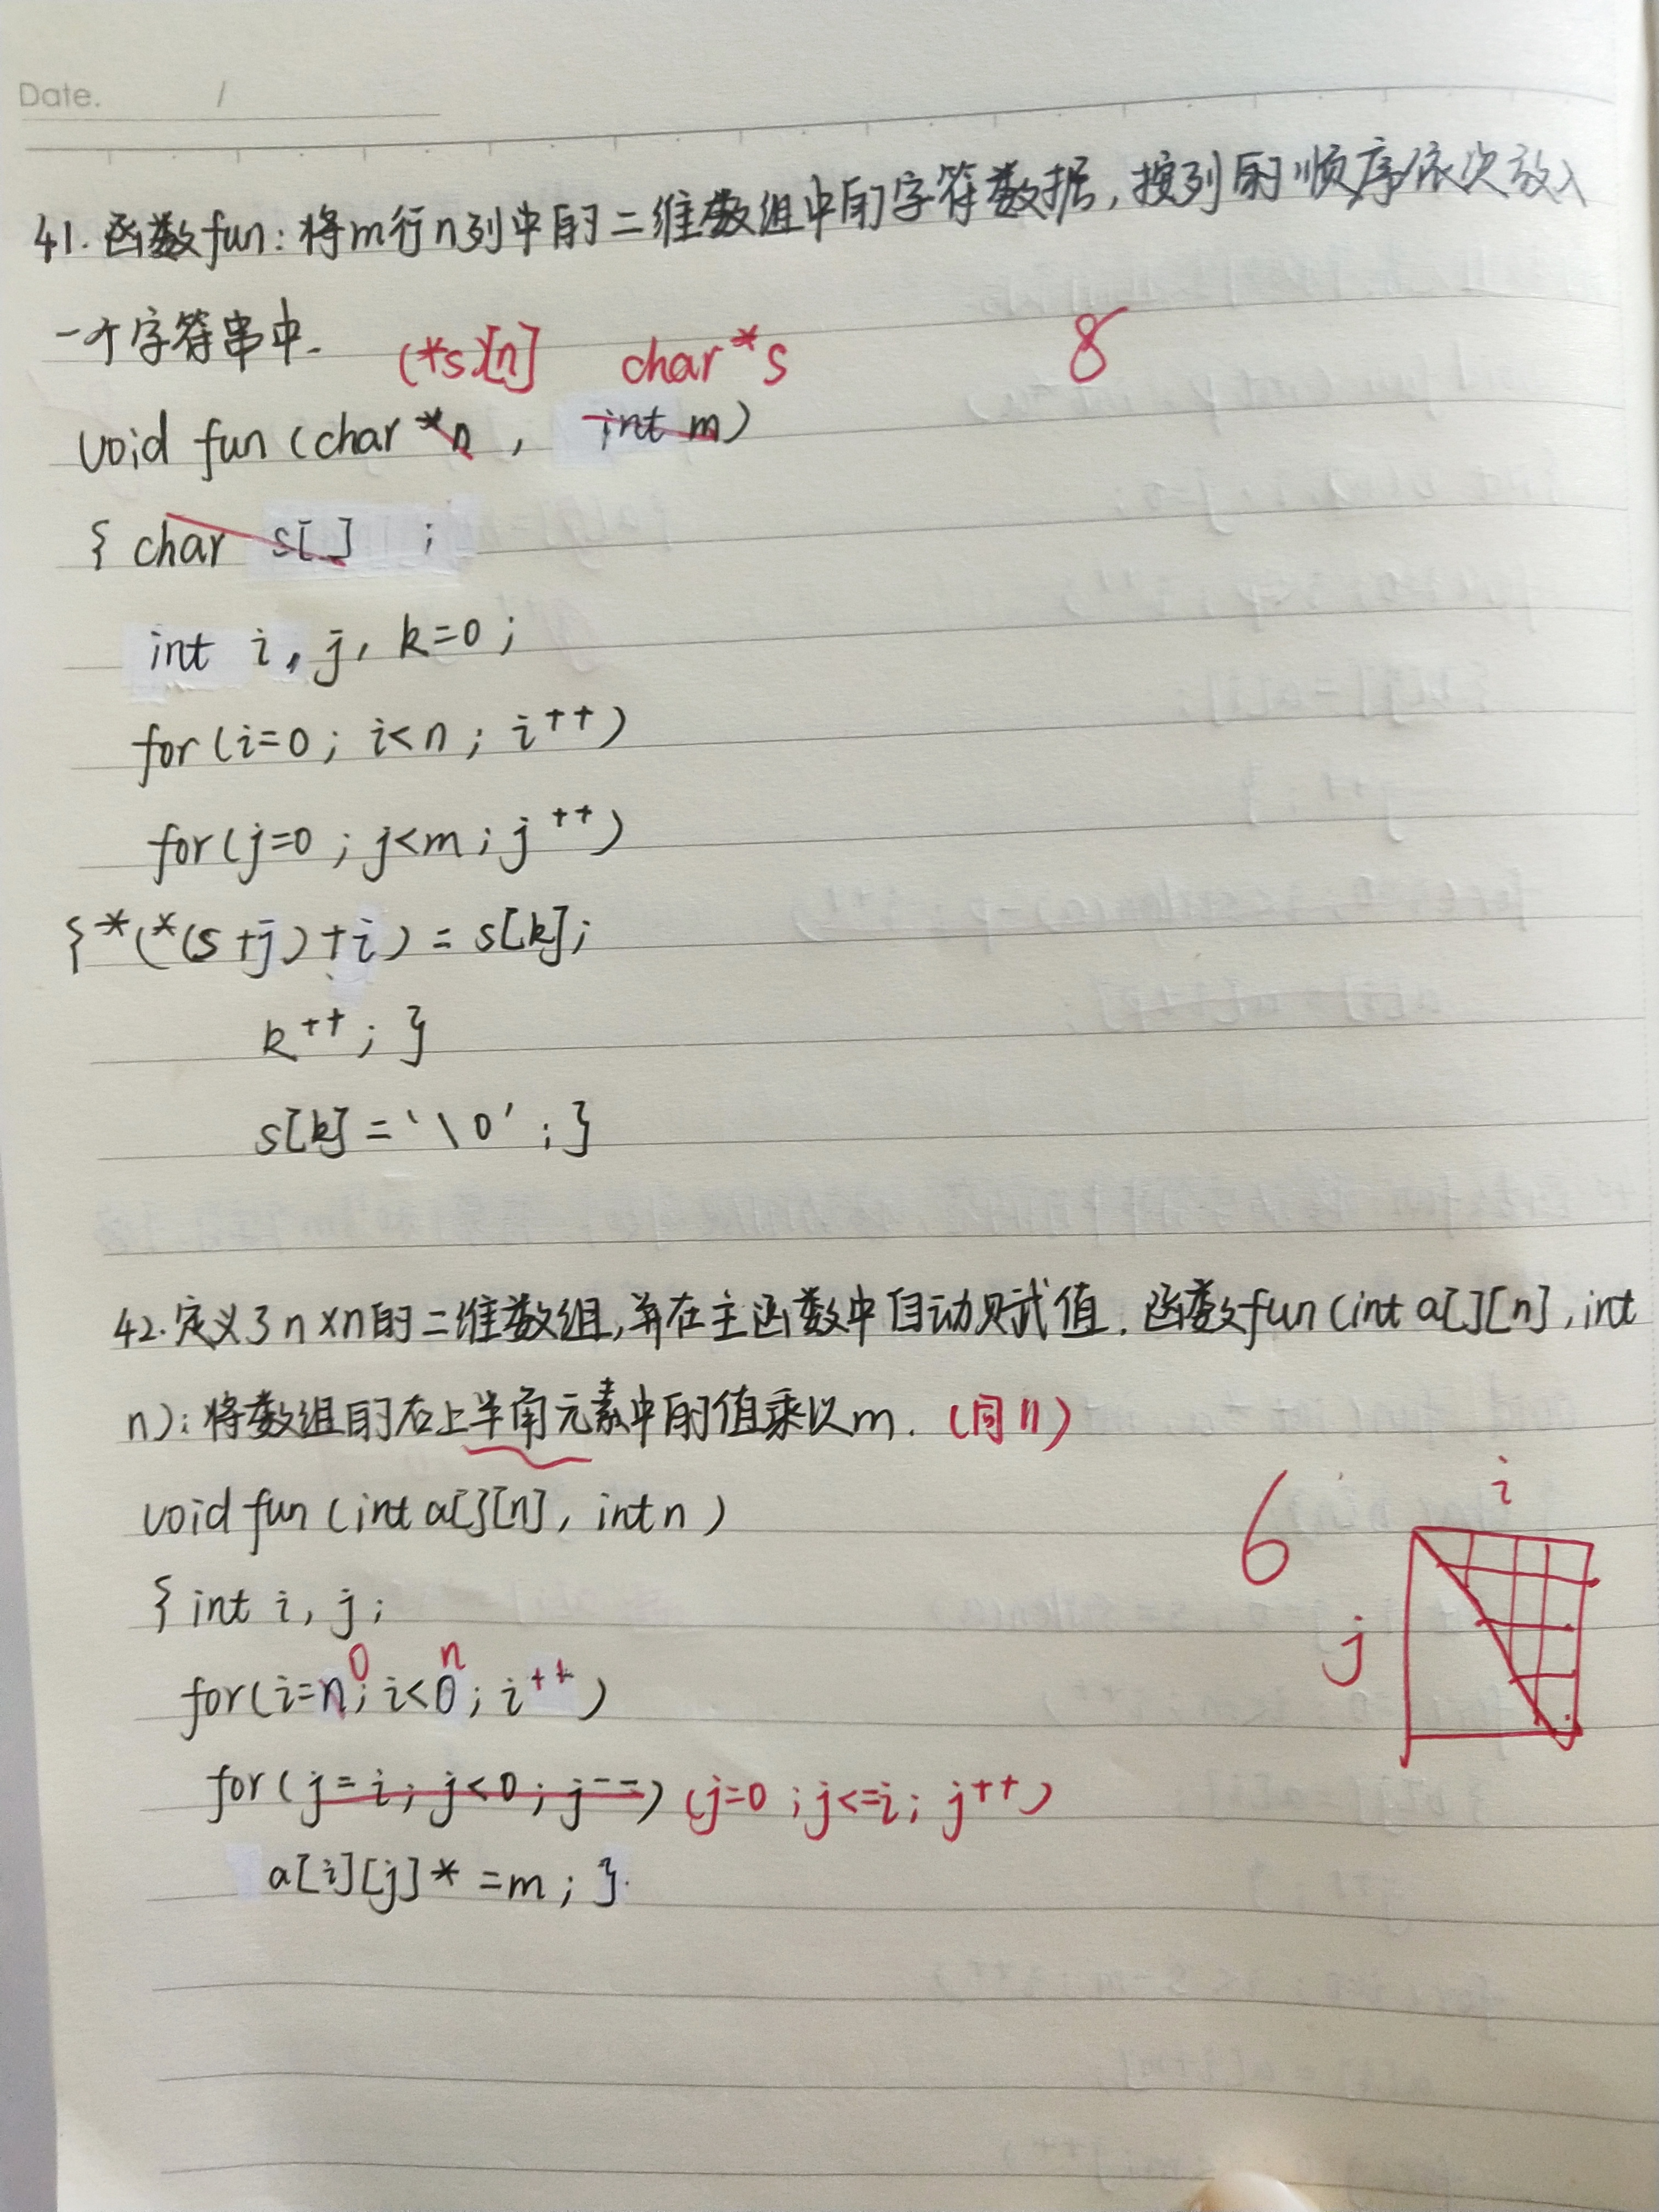 Date. /
41. 函数fun: 将m行n列中的二维数组中的字符数据, 按列的顺序依次放入
一个字符串中.
(*s)[n] char*s 8
void fun (char *n , int m)
{ char s[ ] ;
int i, j, k=0 ;
for (i=0 ; i<n ; i++)
for (j=0 ; j<m ; j++)
{*(*(s+j)+i) = s[k];
k++ ; }
s[k]='\0' ; }
42. 定义了n×n的二维数组,并在主函数中自动赋值. 函数fun (int a[][n] , int
n): 将数组的右上半角元素中的值乘以m. (同11)
void fun (int a[][n] , int n )
6 i
{ int i , j ;
j
0 n
for (i=n; i<0 ; i++ )
for (j=i; j<0 ; j--) (j=0 ; j<=i; j++)
a[i][j]* =m ; }